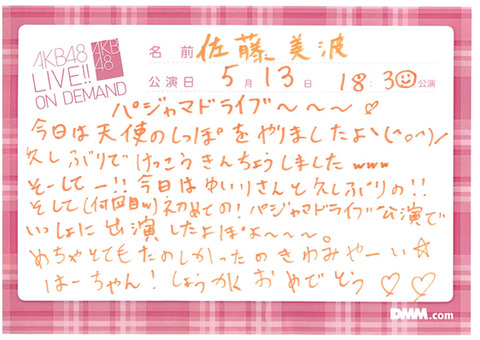 AKB48
LIVE!!
ON DEMAND
AKB
48
名前 佐藤美波
公演日 5月13日 18:30公演
パジャマドライブ〜〜〜♡
今日は天使のしっぽをやりましたよ\(^o^)/
久しぶりでけっこうきんちょうしましたwww
そーしてー!!今日はゆいりさんと久しぶりの!!
そして(何回目w)初めての!パジャマドライブ公演で
いっしょに出演したよぽよ〜〜〜。
めちゃとてもたのしかったのきわみやーい☆
はーちゃん!しょうかくおめでとう♡♡
DMM.com